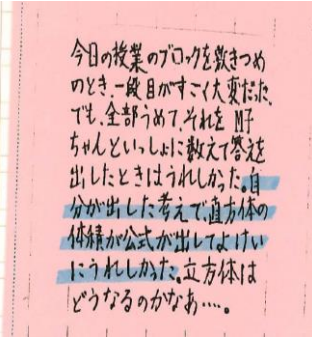 今日の授業のブロックを敷きつめ
のとき、一段目がすごく大変だった。
でも、全部うめて、それを M子
ちゃんといっしょに数えて答えを
出したときはうれしかった。自
分が出した考えで、直方体の
体積が公式が出してよけい
にうれしかった。立方体は
どうなるのかなあ…。